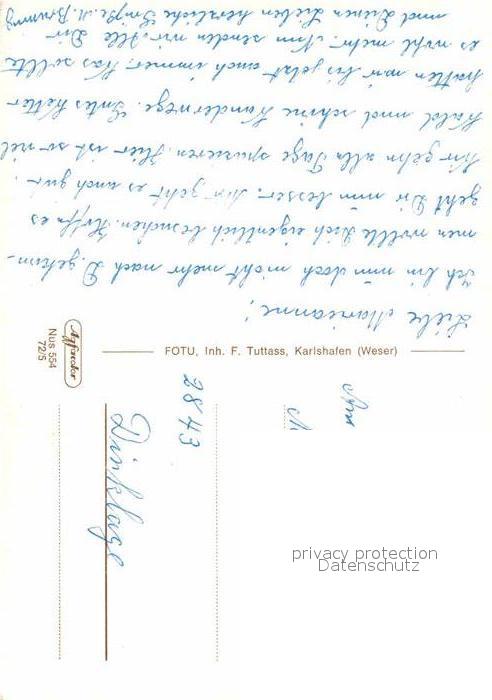 Liebe Marianne!
Ich bin nun doch nicht mehr nach D. gekom-
men wollte Dich eigentlich besuchen. Hoffe es
geht Dir nun besser. Mir geht es auch gut.
Wir gehn alle Tage spazieren. Hier ist so viel
Wald und schöne Wanderwege. Gutes Wetter
hatten wir bis jetzt auch immer. Was sollte
es wohl mehr. Nun senden wir Alle Dir
und Deinen Lieben herzliche Grüße. M.
FOTU, Inh. F. Tuttass, Karlshafen (Weser)
Nus 554
72/5
2843
Dinklage
privacy protection
Datenschutz